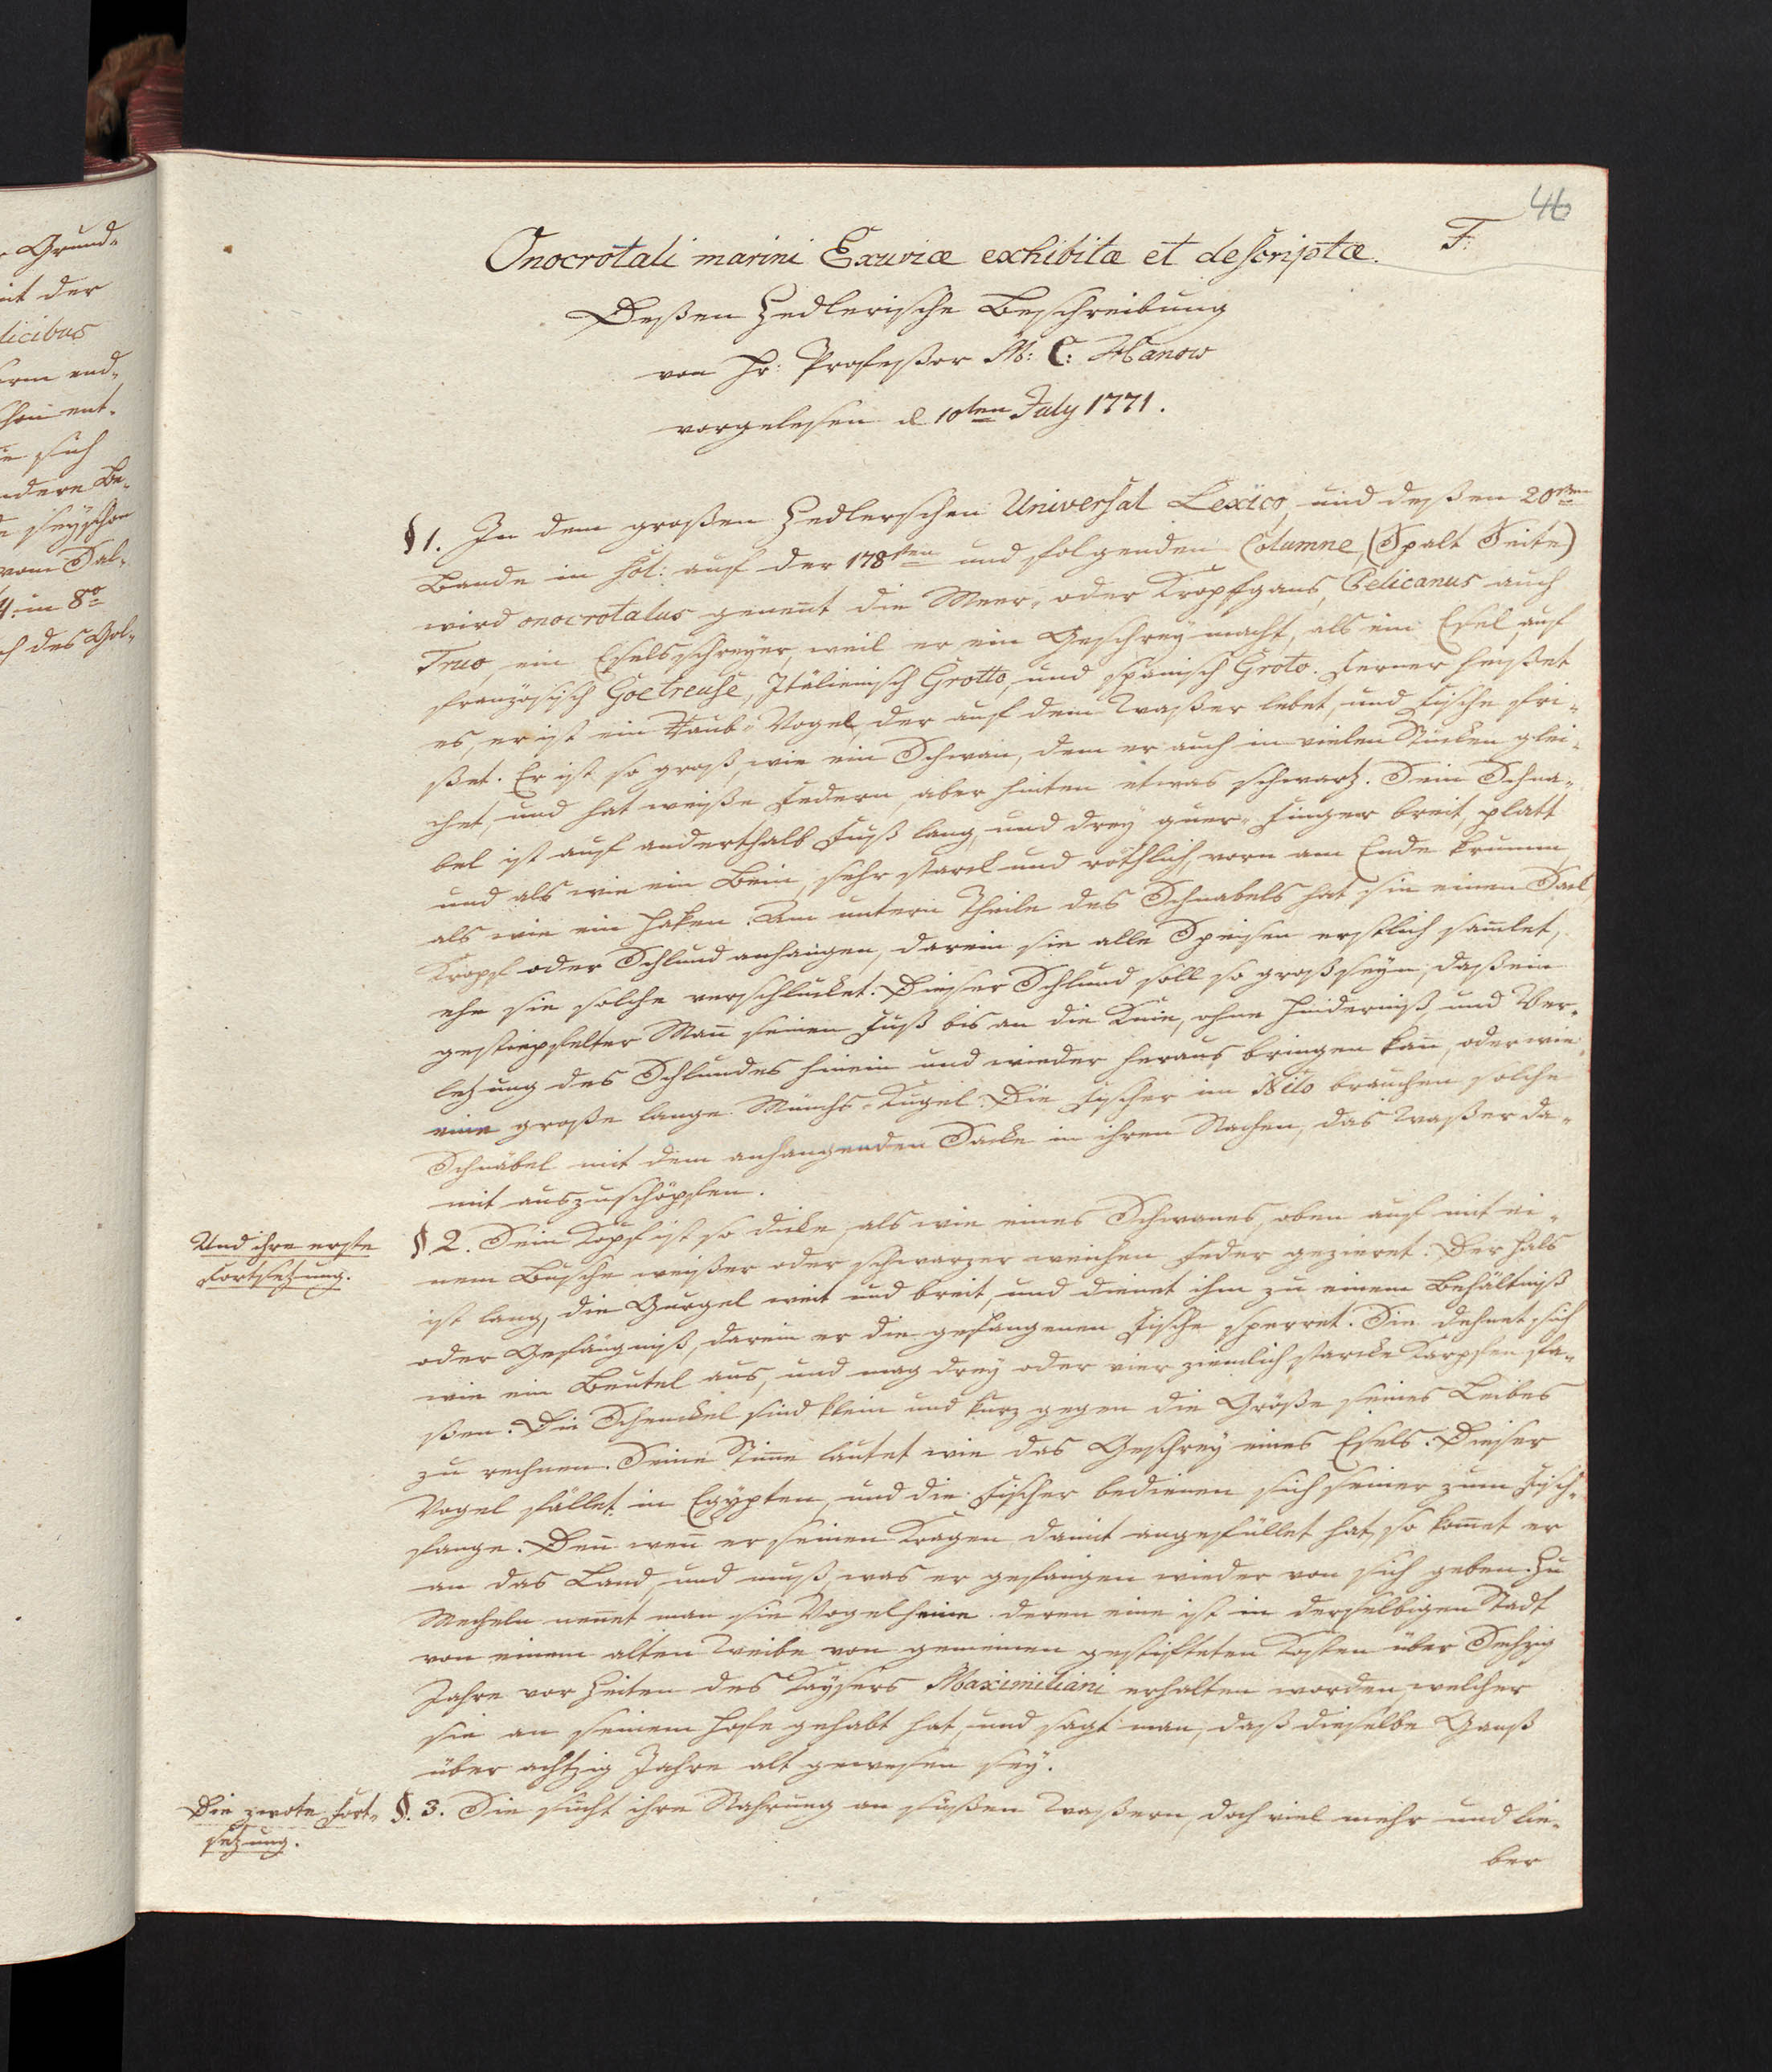 46
F:
Onocrotali marini Exuviæ exhibitæ et descriptæ.
Deßen Zedlerische Beschreibung
von Hr: Profeßor M: C: Hanow
vorgelesen d 10ten July 1771.
§ 1. In dem großen Zedlerschen Universal Lexico, und deßen 20sten
Bande in fol: auf der 178sten und folgenden Columne, (Spalt Seite)
wird onocrotalus genen̄t die Meer- oder Kropfgans, Pelicanus auch
Truo, ein Eselsschreyer, weil er ein Geschrey macht, als ein Esel, auf
französisch Goetreuse, Italienisch Grotto, und spanisch Groto. Ferner heißet
es, er ist ein Raub-Vogel, der auf dem Waßer lebet, und Fische fri-
ßet. Er ist so groß, wie ein Schwan, dem er auch in vielen Stücken glei-
chet, und hat weiße Federn, aber hinten etwas schwartz. Sein Schna-
bel ist auf anderthalb Fuß lang, und drey quer-Finger breit, platt
und als wie ein Bein, sehr starck und röthlich, vorn am Ende krumm,
als wie ein Haken. Am untern Theile des Schnabels hat sie einen Sack,
Kropf oder Schlund anhangen, darein sie alle Speisen erstlich sam̄let,
ehe sie solche verschlucket. Dieser Schlund soll so groß seyn, daß ein
gestiepfelter Man̄ seinen Fuß bis an die Knie, ohne Hinderniß und Ver-
letzung des Schlundes hinein und wieder heraus bringen kan̄, oder wie
eine große lange Münchs-Kugel. Die Fischer im Nilo brauchen solche
Schnäbel mit dem anhangenden Sacke in ihren Nachen, das Waßer da-
mit auszuschöpfen.
Und ihre erste
Fortsetzung.
§ 2. Sein Kopf ist so dicke, als wie eines Schwanes, oben auf mit ei-
nem Busche weißer oder schwarzer weichen Feder gezieret. Der Hals
ist lang, die Gurgel weit und breit, und dienet ihm zu einem Behältniß
oder Gefängniß, darein er die gefangenen Fische sperret. Sie dehnet sich
wie ein Beutel aus, und mag drey oder vier ziemlich starcke Karpfen fa-
ßen. Die Schenckel sind klein und kurz gegen die Größe seines Leibes
zu rechnen. Seine Stim̄e lautet wie das Geschrey eines Esels. Dieser
Vogel fället in Egypten, und die Fischer bedienen sich seiner zum Fisch-
fange. Den̄ wen̄ er seinen Kragen damit angefüllet hat, so kom̄et er
an das Land, und muß, was er gefangen wieder von sich geben. Zu
Mecheln nen̄et man sie Vogelheine deren eine ist in derselbigen Stadt
von einem alten Weibe von gemeinen gestifteten Kosten über Sechzig
Jahre vor Zeiten des Kaysers Maximiliani erhalten worden, welcher
sie an seinem Hofe gehabt hat, und sagt man, daß dieselbe Ganß
über achtzig Jahre alt gewesen sey.
Die zwote Fort-
setzung.
§. 3. Sie sucht ihre Nahrung an süßen Waßern, doch viel mehr und lie-
ber